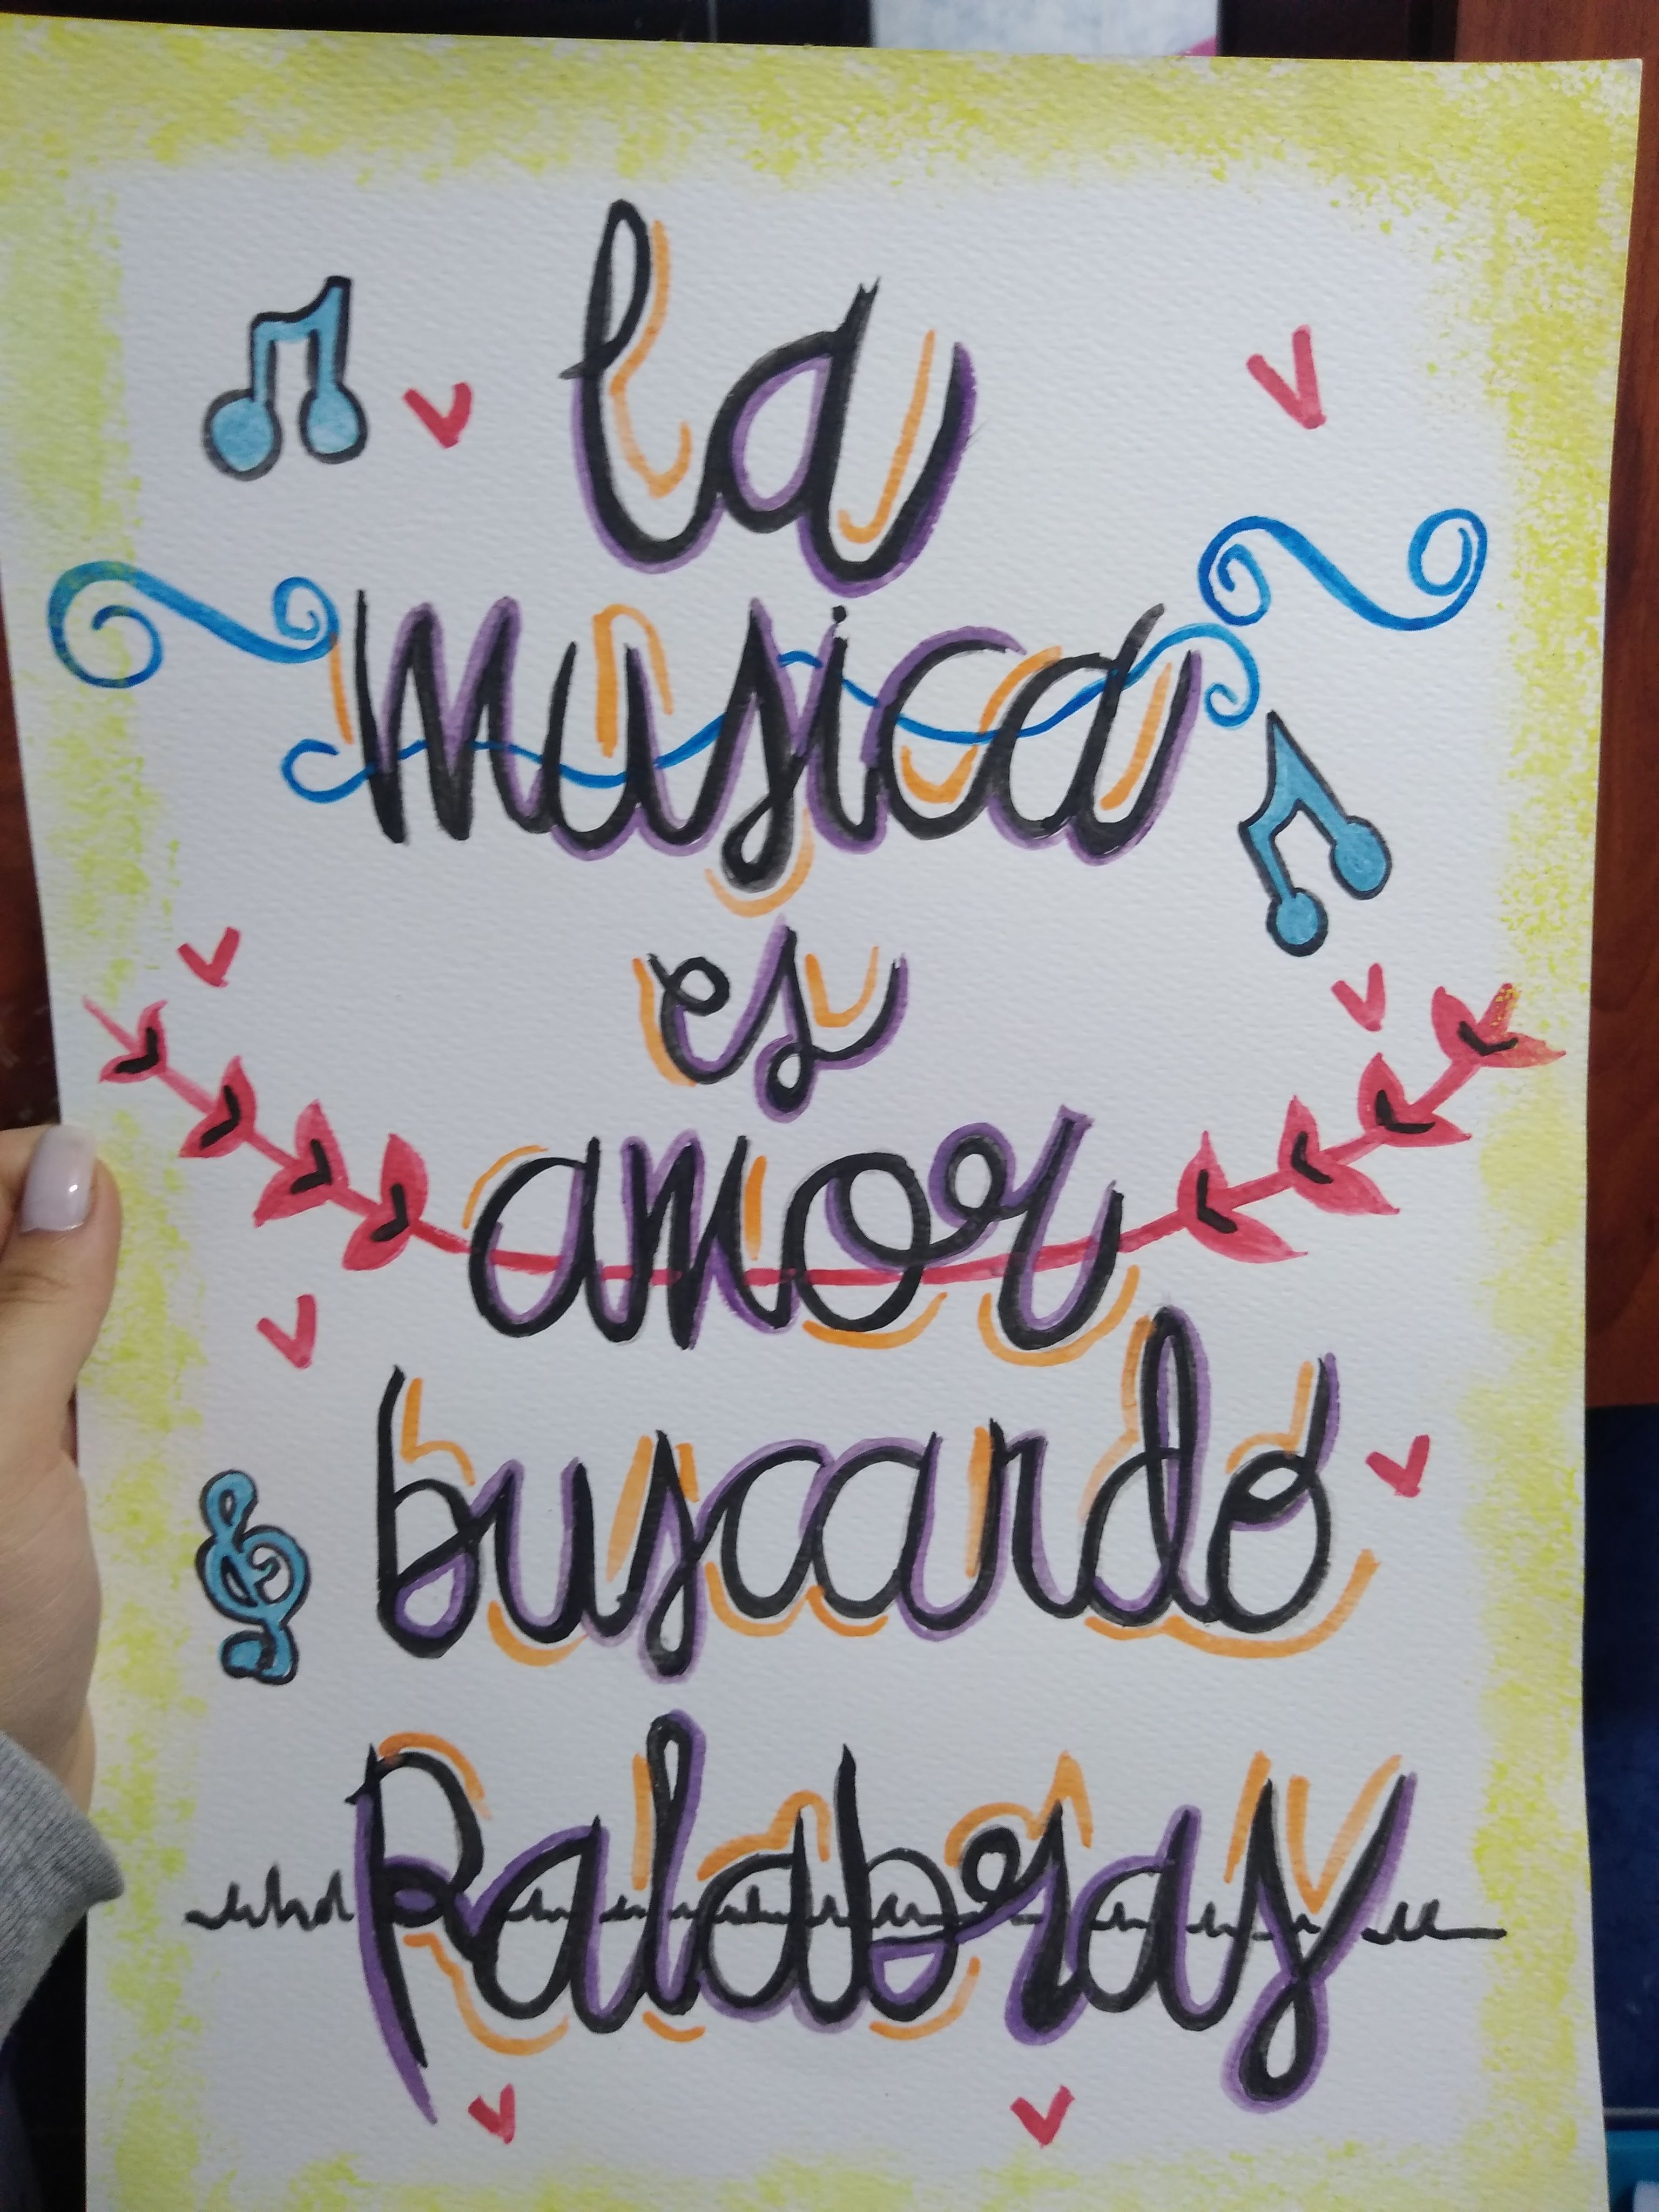 la
musica
es
amor
buscando
Palabras